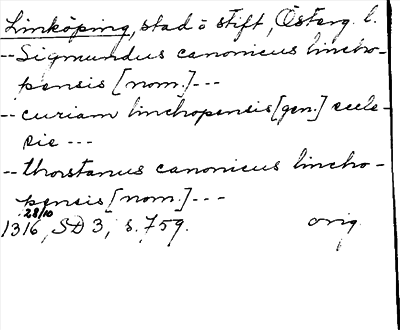 Linköping, stad o stift, Österg. l.
-- Sigmundus canonicus lincho-
pensis [nom.] ---
-- curiam linchopensis [gen.] eccle-
sie ---
-- thorstanus canonicus lincho-
pensis [nom.] ---
1316 28/10, SD 3, s. 759. orig.